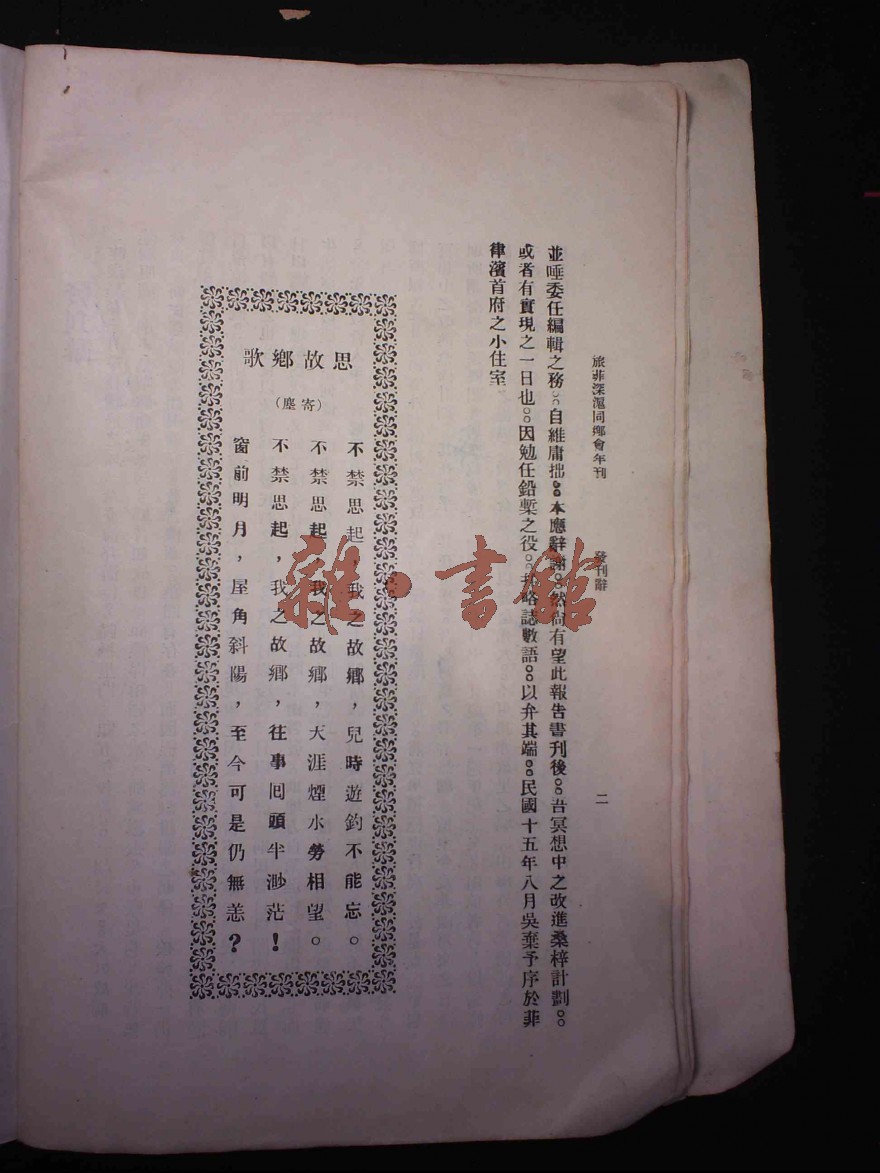 旅菲深滬同鄉會年刊　發刊辭　二
並唾委任編輯之務○○自維庸拙○○本應辭謝○○然尚有望此報告書刊後○○吾冥想中之改進桑梓計劃○○
或者有實現之一日也○○因勉任鉛槧之役○○略誌數語○○以弁其端○○民國十五年八月吳棄予序於菲
律濱首府之小住室
思故鄉歌
（寄塵）
不禁思起，我之故鄉，兒時遊釣不能忘。
不禁思起，我之故鄉，天涯煙水勞相望。
不禁思起，我之故鄉，往事囘頭半渺茫！
窗前明月，屋角斜陽，至今可是仍無恙？
雜·書館